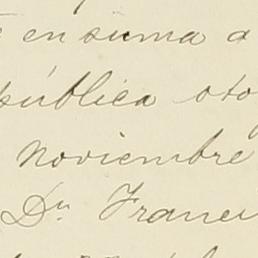 en suma a
pública oto
noviembre
Dn Franci